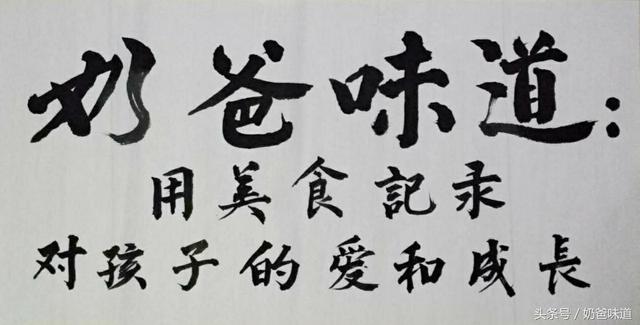 奶爸味道:
用美食記录
对孩子的爱和成長
头条号/奶爸味道